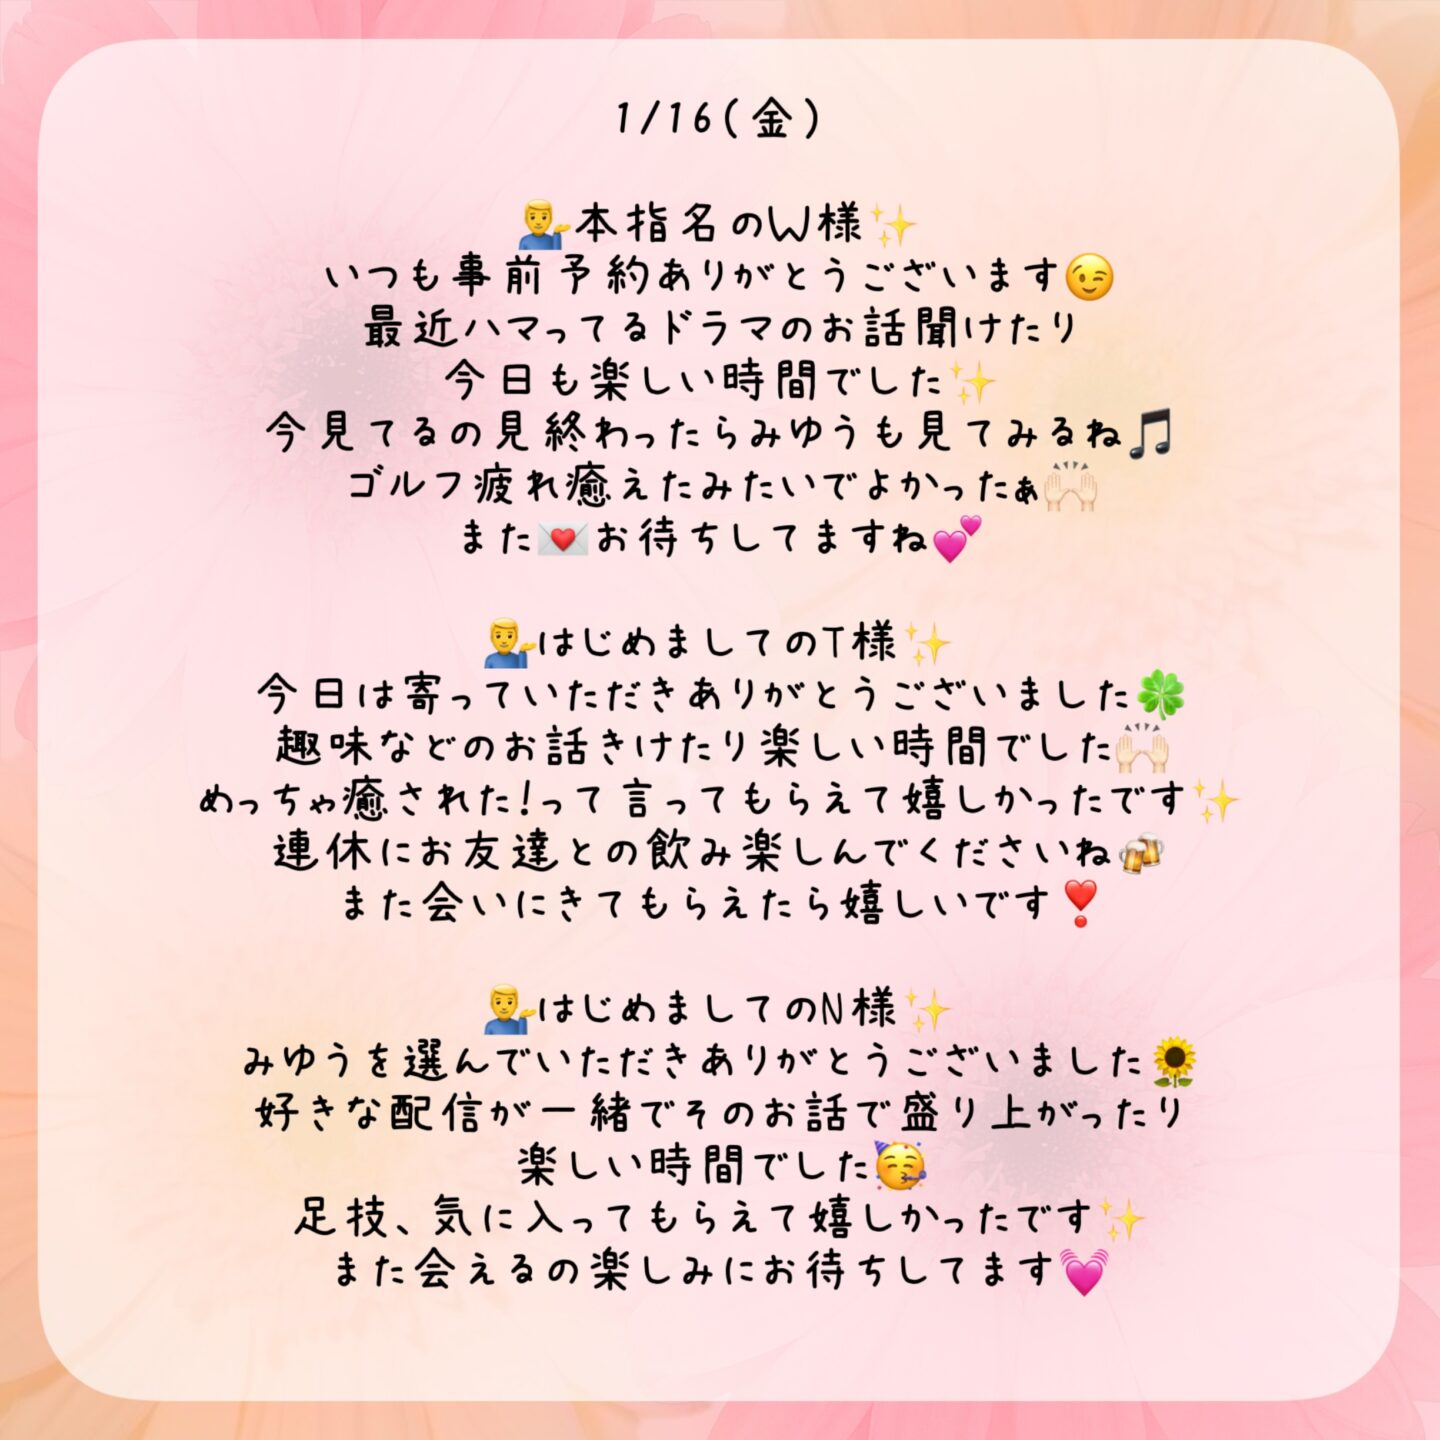 1/16(金)
💁‍♂️本指名のW様✨
いつも事前予約ありがとうございます😉
最近ハマってるドラマのお話聞けたり
今日も楽しい時間でした✨
今見てるの見終わったらみゆうも見てみるね🎵
ゴルフ疲れ癒えたみたいでよかったぁ🙌🏻
また💌お待ちしてますね💕
💁‍♂️はじめましてのT様✨
今日は寄っていただきありがとうございました🍀
趣味などのお話きけたり楽しい時間でした🙌🏻
めっちゃ癒された!って言ってもらえて嬉しかったです✨
連休にお友達との飲み楽しんでくださいね🍻
また会いにきてもらえたら嬉しいです❣️
💁‍♂️はじめましてのN様✨
みゆうを選んでいただきありがとうございました🌻
好きな配信が一緒でそのお話で盛り上がったり
楽しい時間でした🥳
足技、気に入ってもらえて嬉しかったです✨
また会えるの楽しみにお待ちしてます💓